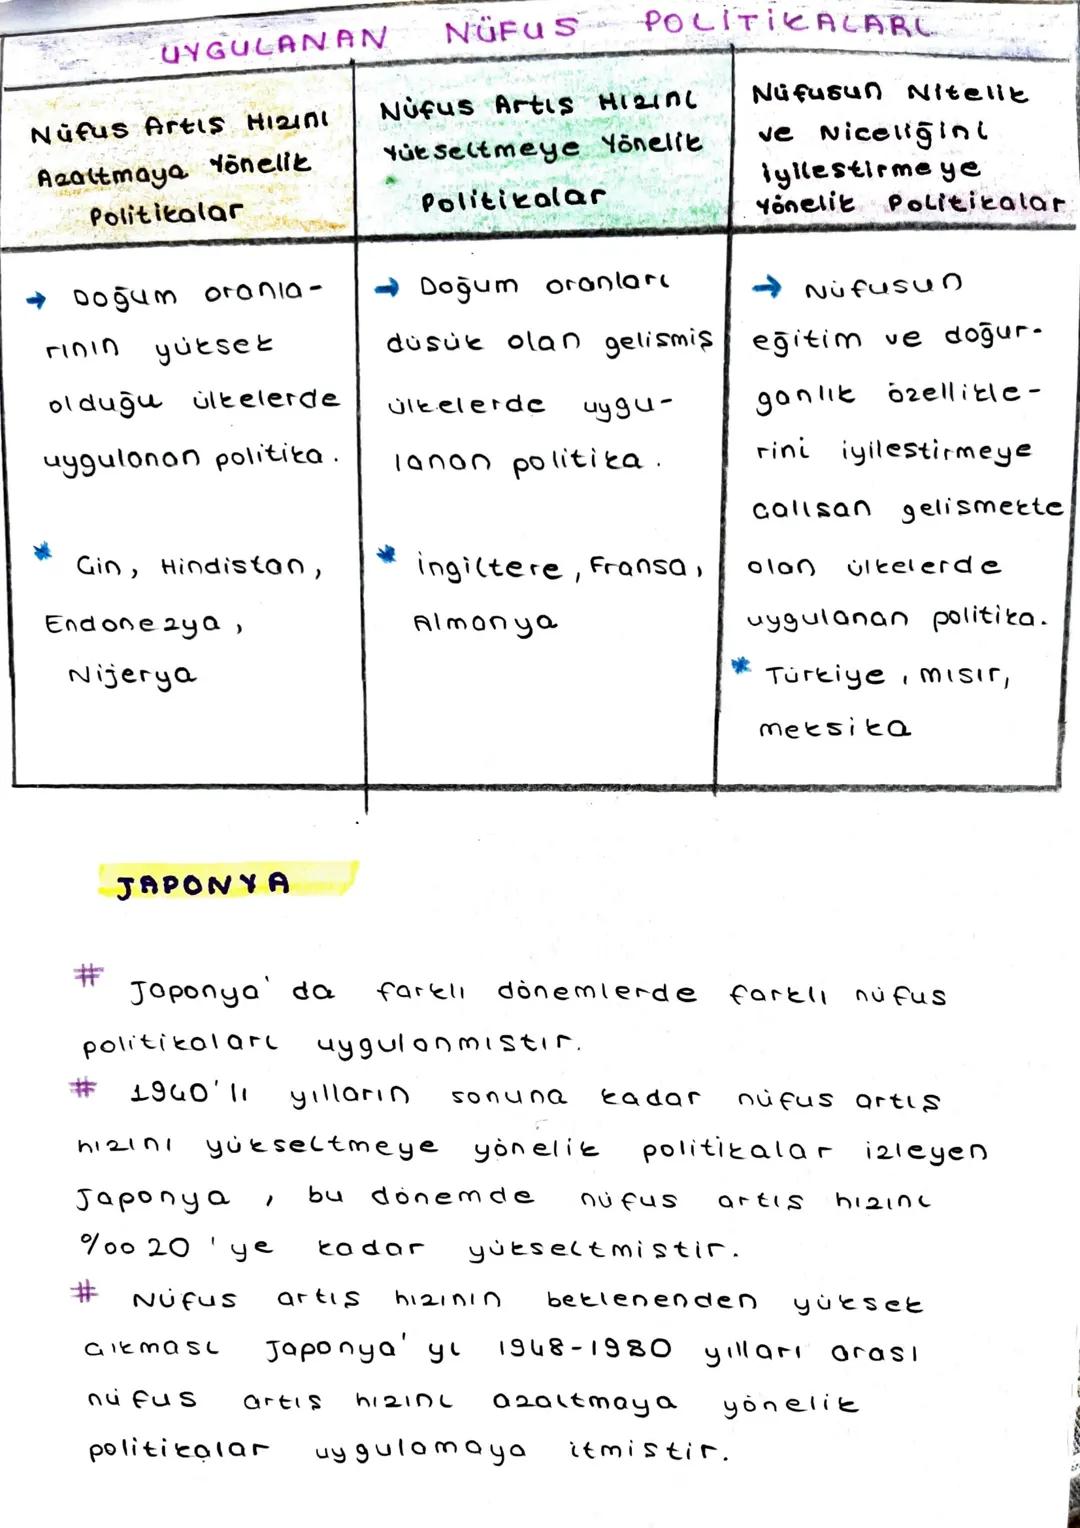 UYGULANAN NÜFUS POLİTİKALARI
Nüfus Artış Hızını
Azaltmaya Yönelik
Politikalar
→ Doğum oranla-
rının yüksek
olduğu ülkelerde
uygulanan politika.
* Çin, Hindistan,
Endonezya,
Nijerya
Nüfus Artış Hızını
Yükseltmeye Yönelik
Politikalar
→ Doğum oranları
düşük olan gelişmiş
ülkelerde uygu-
lanan politika.
* İngiltere, Fransa,
Almanya
Nüfusun Nitelik
ve Niceliğini
iyileştirmeye
Yönelik Politikalar
→ Nüfusun
eğitim ve doğur-
ganlık özellikle-
rini iyileştirmeye
çalışan gelişmekte
olan ülkelerde
uygulanan politika.
* Türkiye, mısır,
meksika
JAPONYA
# Japonya'da farklı dönemlerde farklı nüfus
politikaları uygulanmıştır.
# 1940'lı yılların sonuna kadar nüfus artış
hızını yükseltmeye yönelik politikalar izleyen
Japonya, bu dönemde nüfus artış hızını
%00 20'ye kadar yükseltmiştir.
# Nüfus artış hızının beklenenden yüksek
çıkması Japonya'yı 1948-1980 yılları arası
nüfus artış hızını azaltmaya yönelik
politikalar uygulamaya itmiştir.